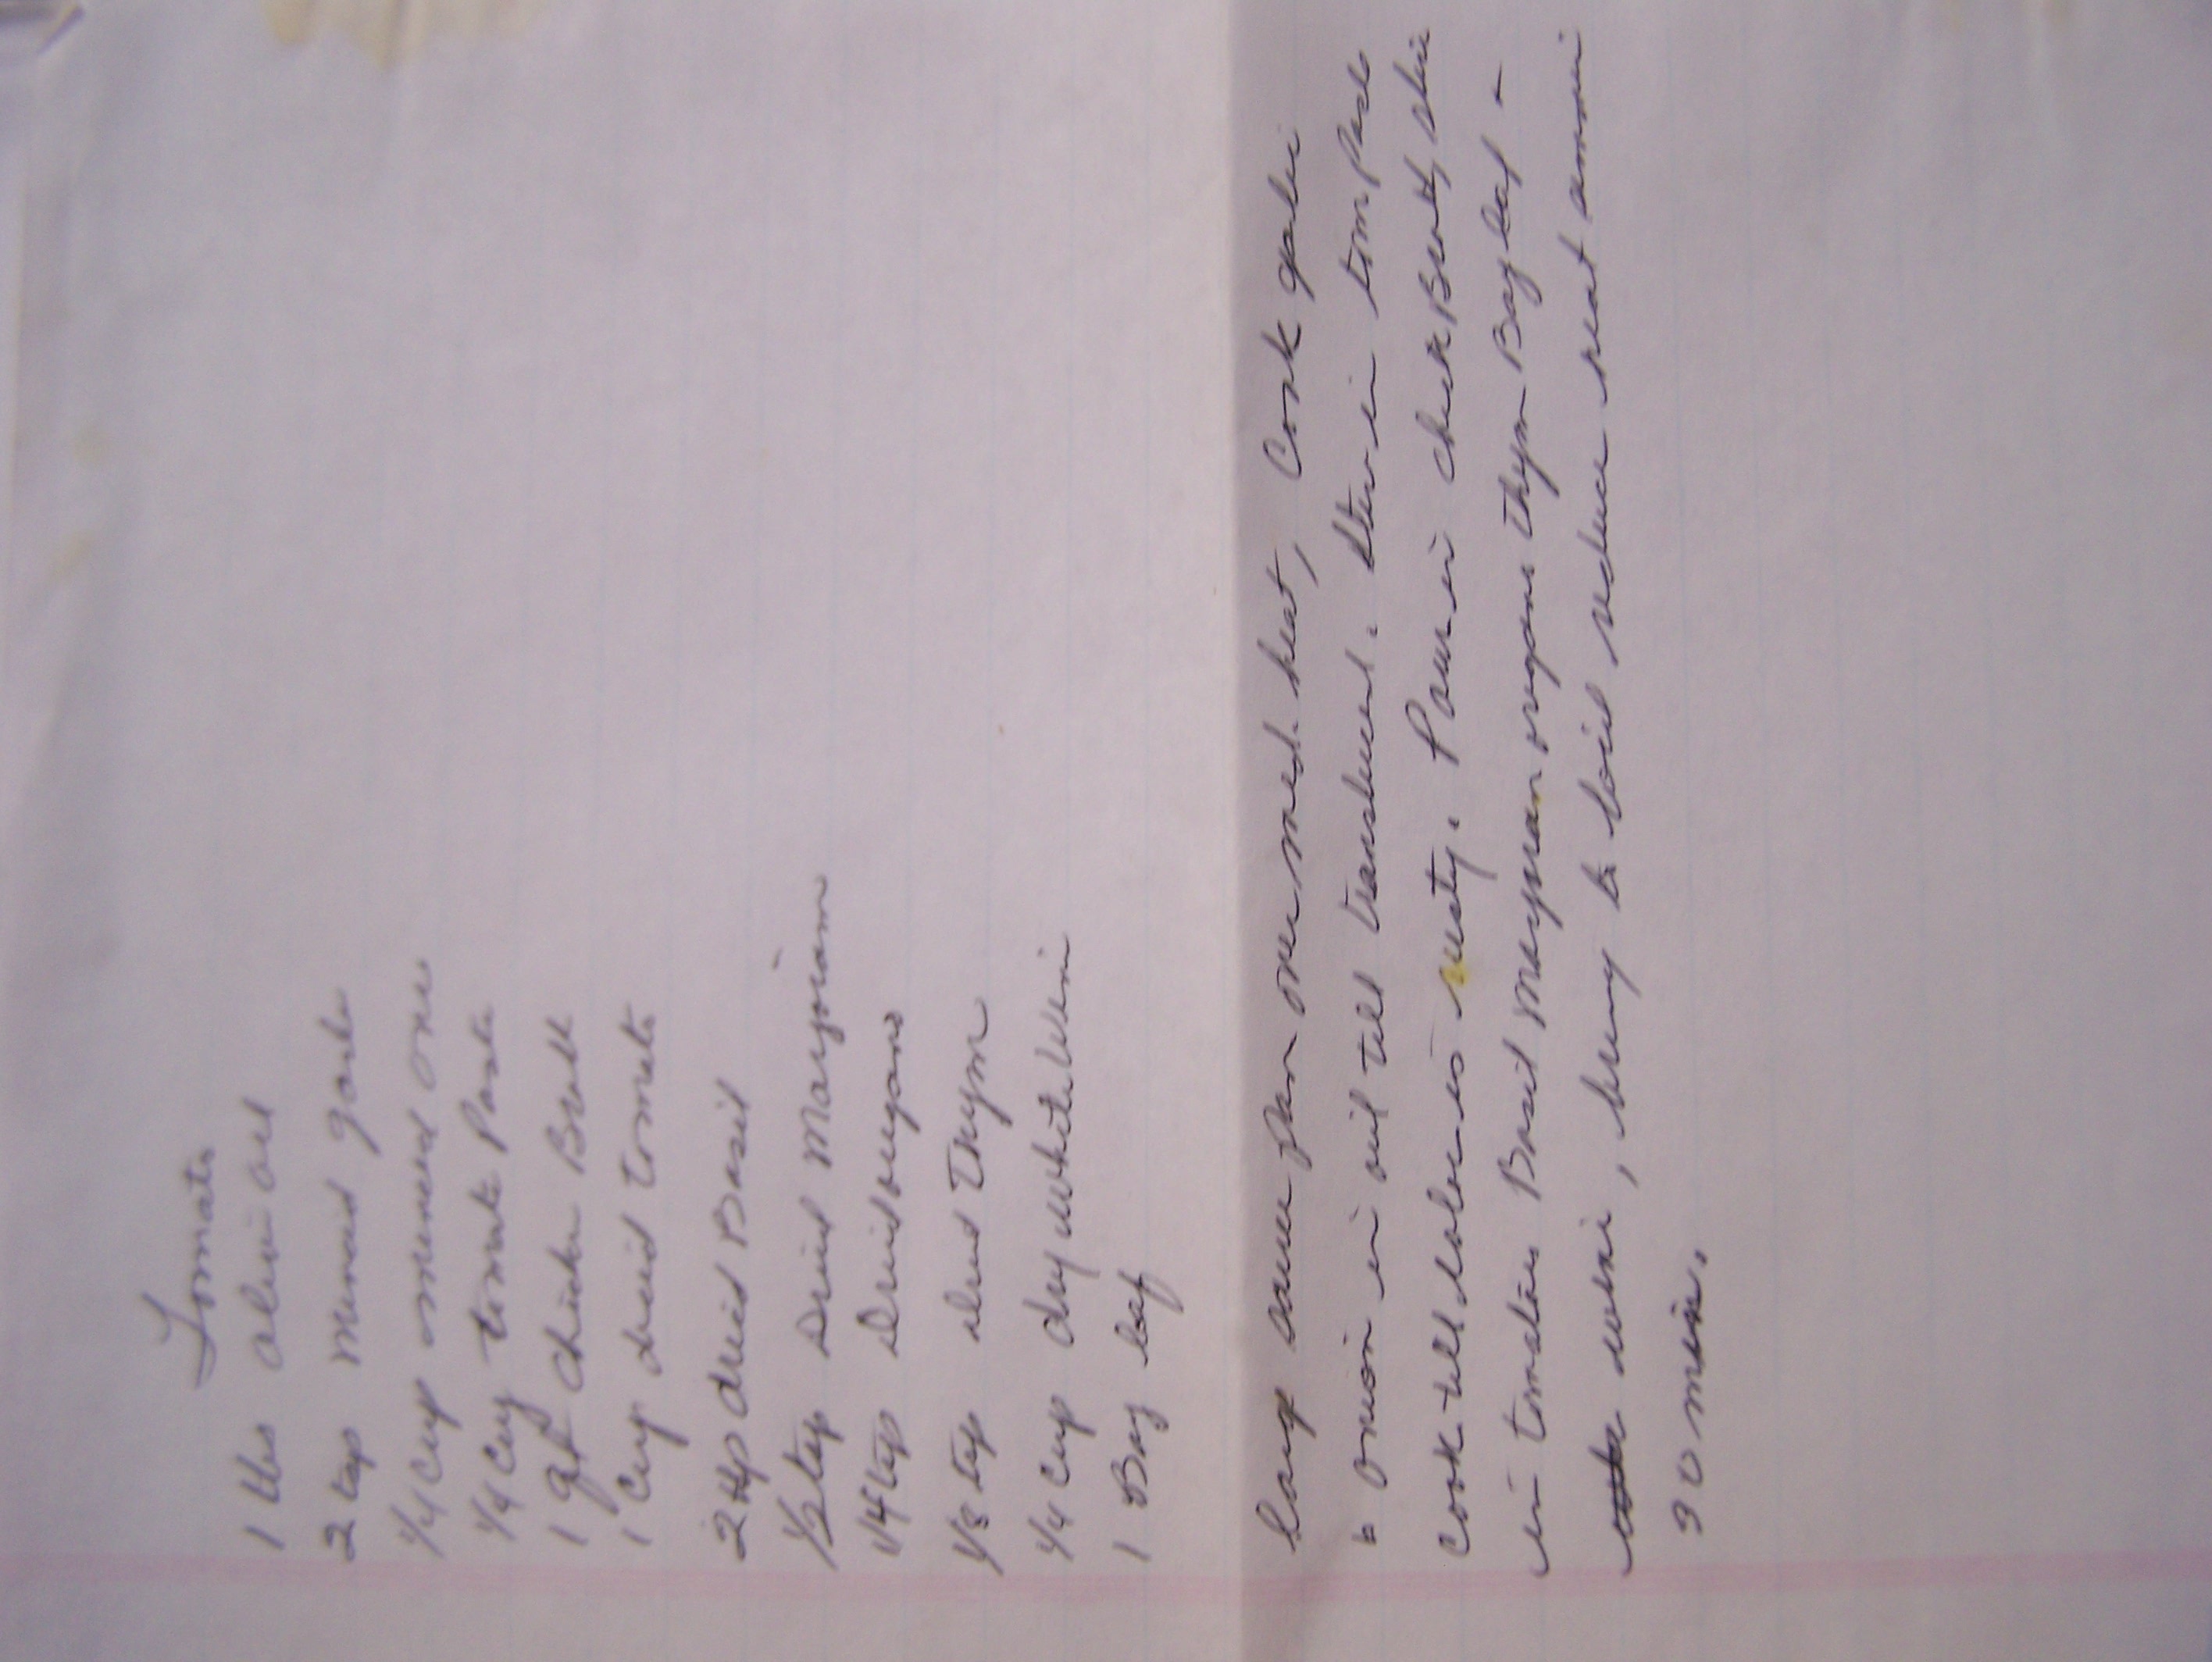 Tomato
1 tbs olive oil
2 tsp minced garlic
1/4 cup minced onion
1/4 cup tomato Paste
1 qt chicken Broth
1 cup dried tomato
2 tsp dried Basil
1/2 tsp Dried Marjoram
1/4 tsp Dried oregano
1/8 tsp dried Thym
1/4 cup dry white Wine
1 Bay leaf
Large sauce pan over med. heat, Cook garlic
& onion in oil till translucent. Stir in tom Paste
Cook till color is rusty. Pour in chick Broth, stir
in tomatoes Basil Marjoram oregano thym Bay leaf &
wine, bring to boil reduce heat simmer
30 min.